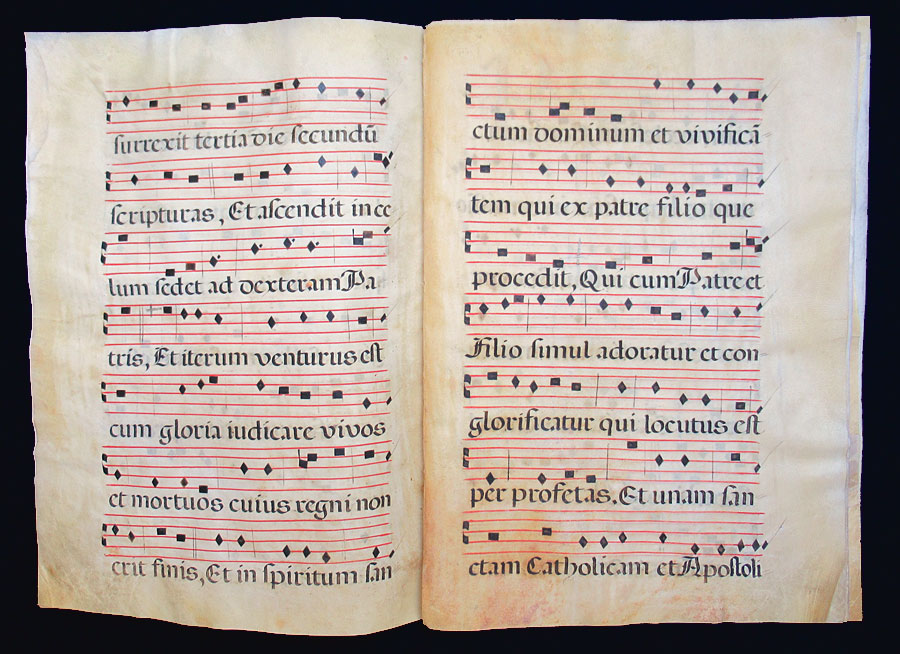 surrexit tertia die secundū
scripturas, Et ascendit in ce
lum sedet ad dexteram Pa
tris, Et iterum venturus est
cum gloria iudicare vivos
et mortuos cuius regni non
erit finis, Et in spiritum san
ctum dominum et vivificā
tem qui ex patre filio que
procedit, Qui cum Patre et
Filio simul adoratur et con-
glorificatur qui locutus est
per profetas. Et unam san
ctam Catholicam et Apostoli